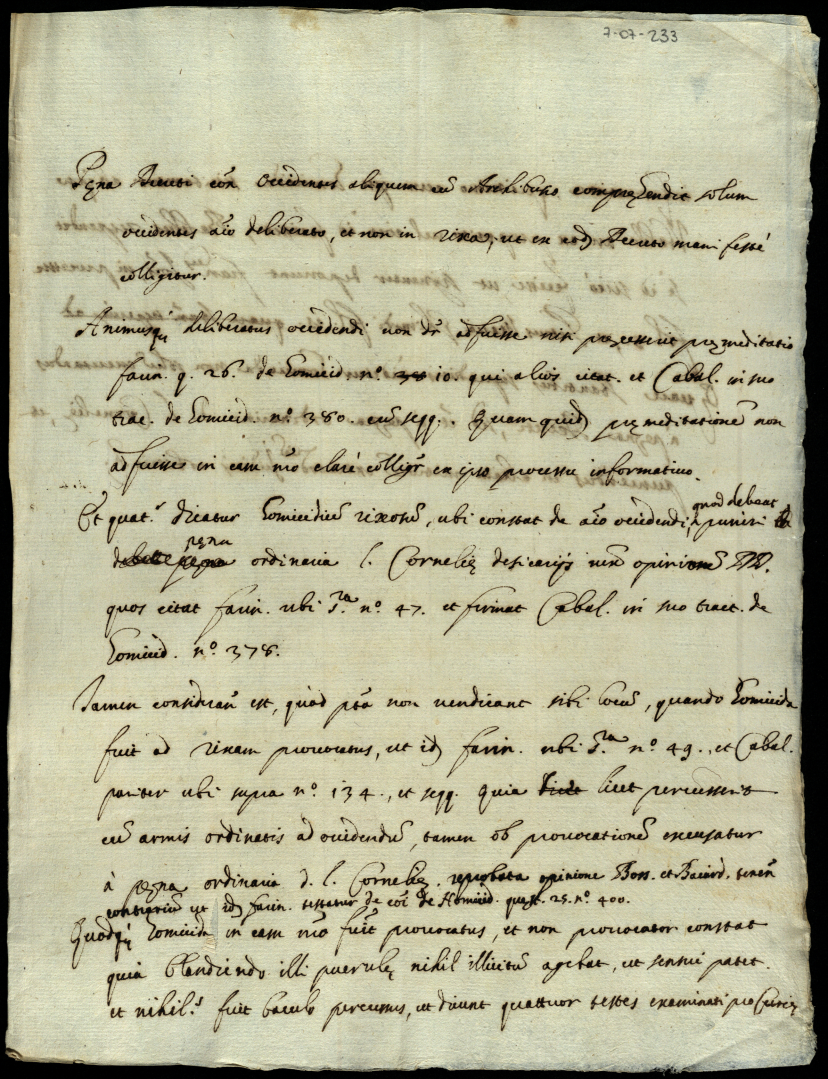 7-07-233
Pęna Decreti con̄ occidentes aliquem cū Archibusio compręhendit solum
occidentes aīo deliberato, et non in rixa, ut ex eod Decreto manifestè
colligitur.
Animusq; deliberatus occidendi non dr̄ adfuisse nisi pręcesserit pręmeditatio
farin. q. 26. de homicid. nº. 10. qui alios citat. et Cabal. in suo
trac. de homicid. nº. 380. cū seqq. Quam quid pręmeditationē non
adfuisse in casu nr̄o clarè colligr̄ ex ipso processu informativo.
Et quat.s dicatur homicidiū rixosū, ubi constat de aīo occidendi, quod debeat puniri
pęna ordinaria l. Cornelię de sicarijs iuxᵃ opinionē DD.
quos citat farin. ubi s.ra nº. 47. et firmat Cabal. in suo tract. de
homicid. nº. 378.
Tamen considerān est, quòd pt̄a non vendicant sibi locū, quando homicida
fuit ad rixam provocatus, ut id farin. ubi s.ra nº. 49., et Cabal.
pariter ubi supra nº. 134., et seqq. quia licet percusserit
cū armis ordinatis ad occidendū, tamen ob provocationē excusatur
à pęna ordinaria d. l. Cornelię. reprobata opinione Boss. et Baiard. tenen̄
contrariū ut id farin. testatur de coī de Homicid. quęst. 25. nº. 400.
Quodq; homicida in casu nr̄o fuit provocatus, et non provocator constat
quia blandiendo illi puerulę nihil illicitū agebat, ut sensui patet.
et nihil.s fuit baculo percussus, ut dicunt quattuor testes examinati pro Curia